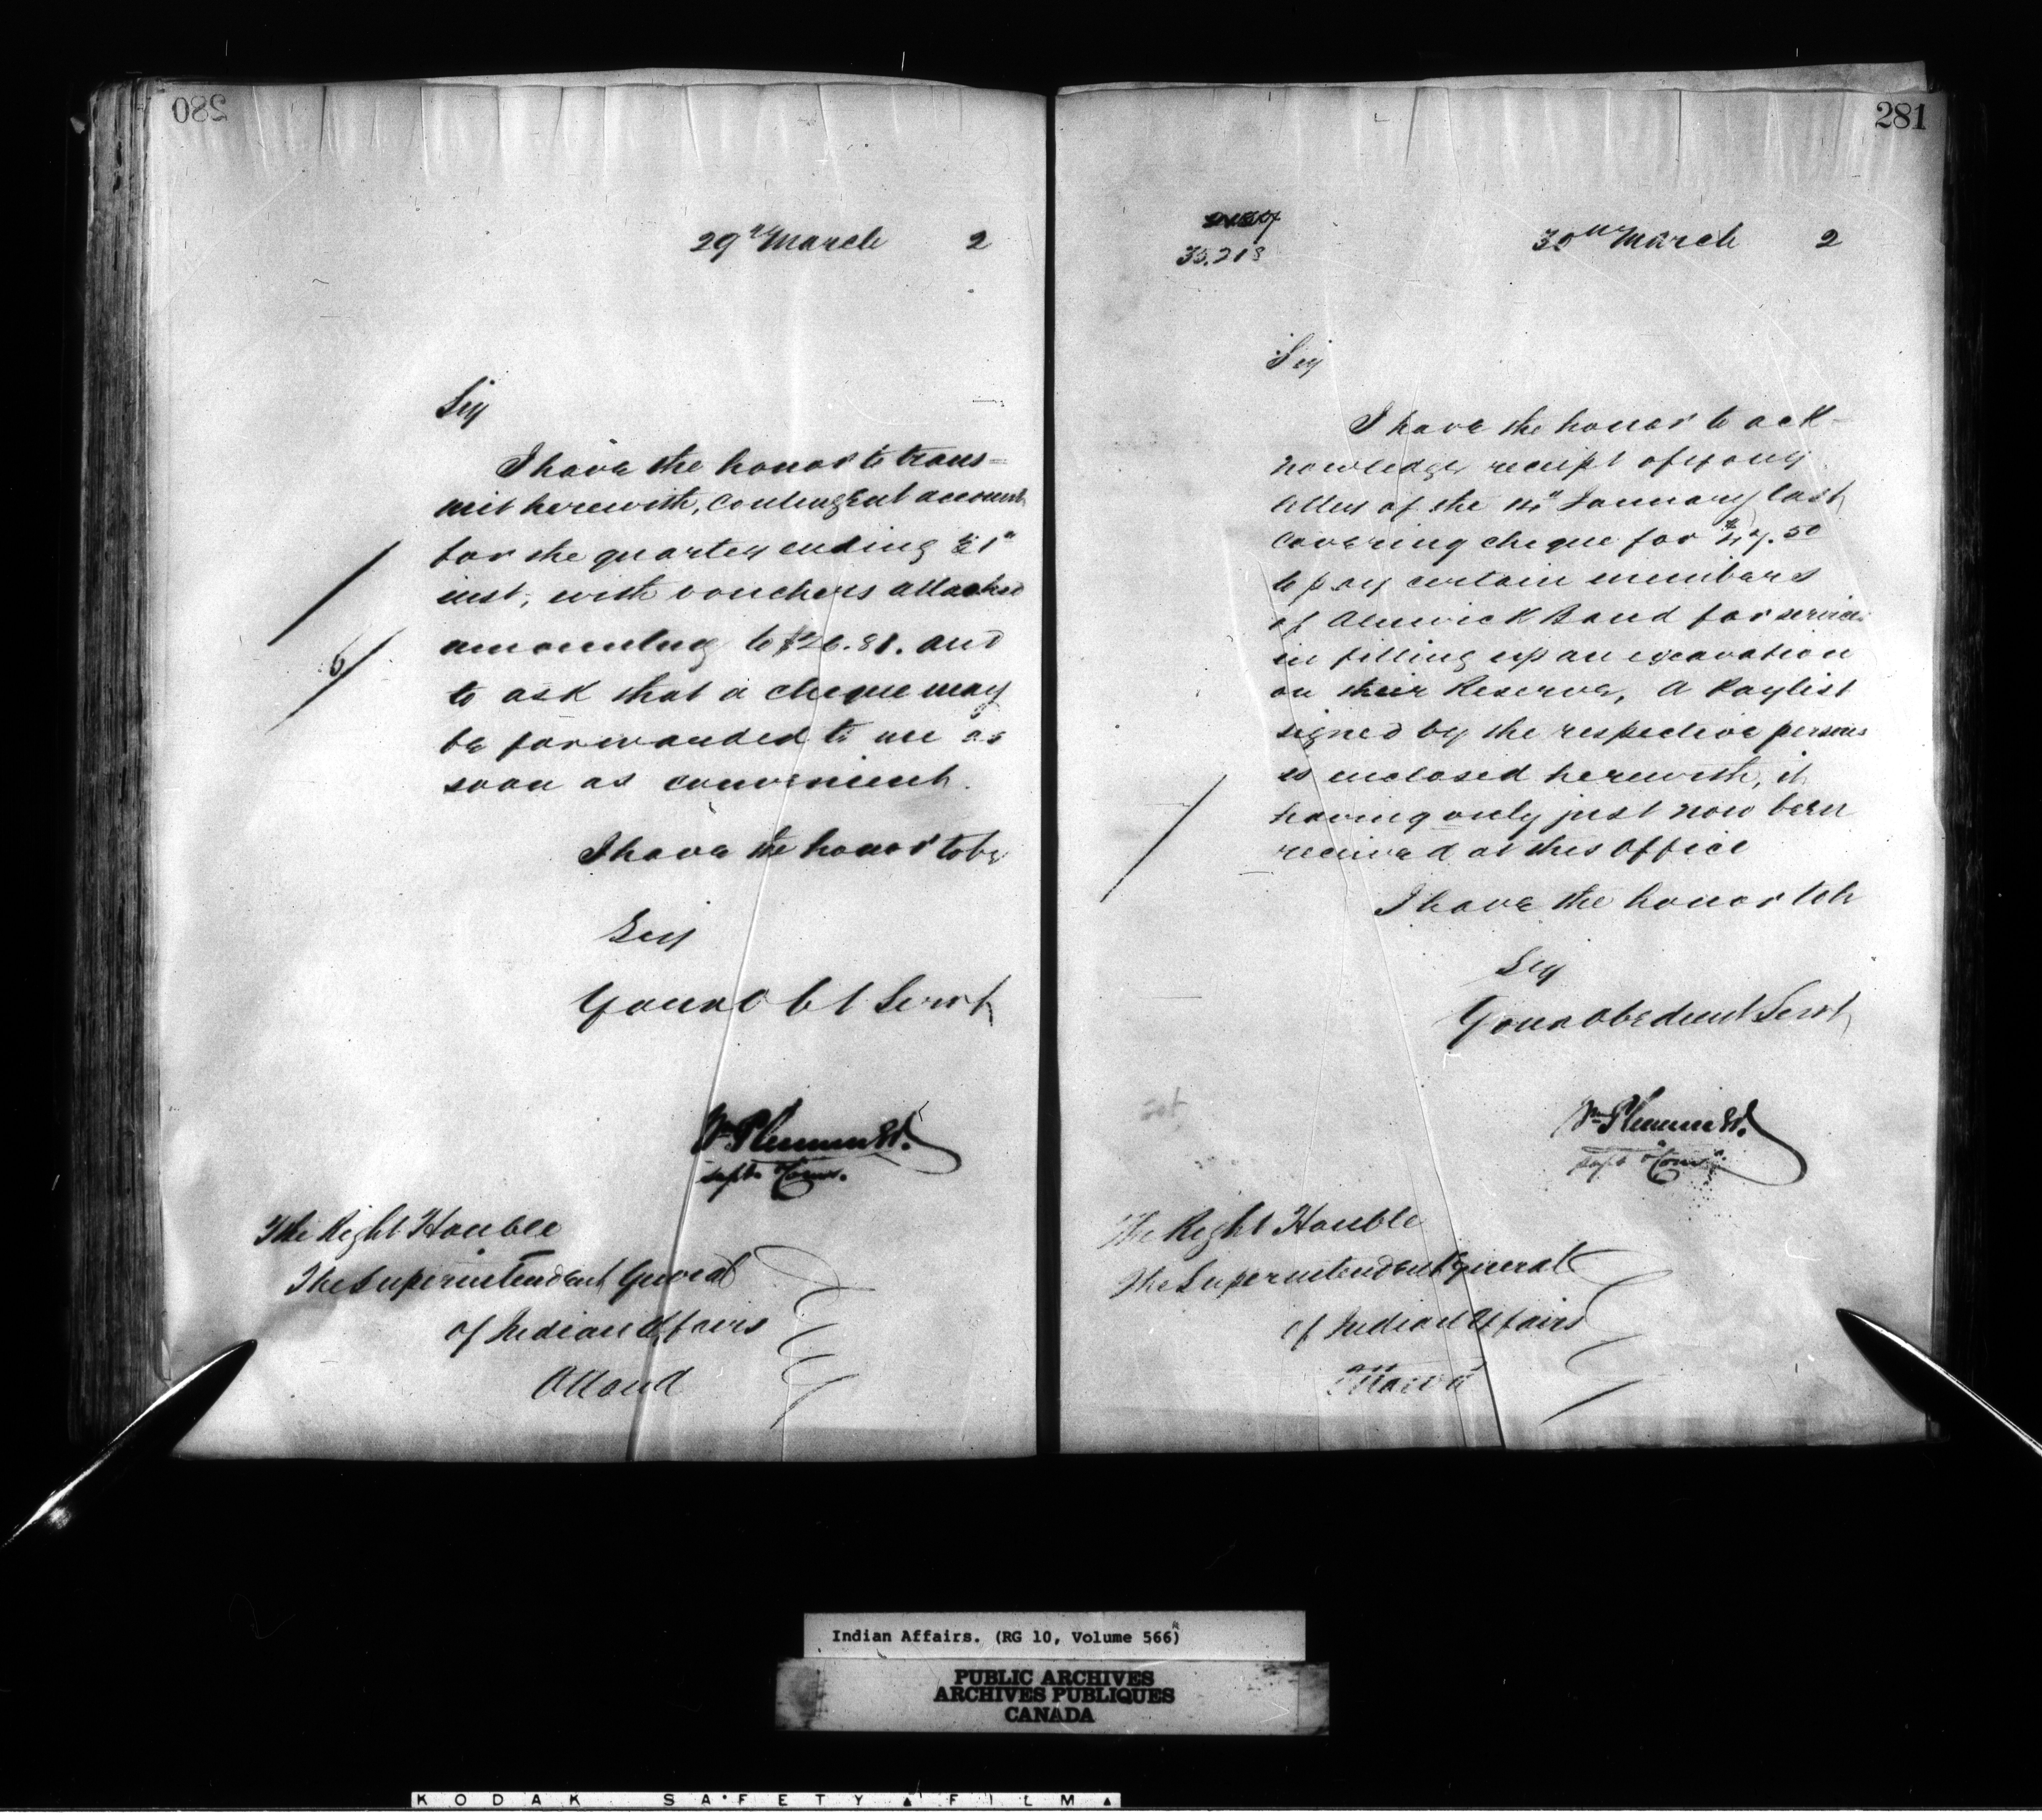 280
29th March 2
Sir
I have the honor to trans=
mit herewith, Contingent accounts
for the quarter ending 31st
inst, with vouchers attached
amounting to $26.81. and
to ask that a cheque may
be forwarded to me as
soon as convenient.
I have the honor to be
Sir
Your Obt Servt
Wm Plummer
Supt & Comr.
The Right Honble
The Superintendent General
of Indian Affairs
Ottawa
281
30th March 2
35.218
Sir
I have the honor to ack-
nowledge receipt of your
letter of the January last
covering cheque for
to pay certain members
of Alnwick Band for services
in filling up an excavation
on their Reserve, A Paylist
signed by the respective persons
is enclosed herewith, it
having only just now been
received at this Office
I have the honor to be
Sir
Your Obedient Servt
Wm Plummer
Supt & Comr
The Right Honble
The Superintendent General
of Indian Affairs
Ottawa
Indian Affairs. (RG 10, Volume 566)
PUBLIC ARCHIVES
ARCHIVES PUBLIQUES
CANADA
KODAK SAFETY FILM